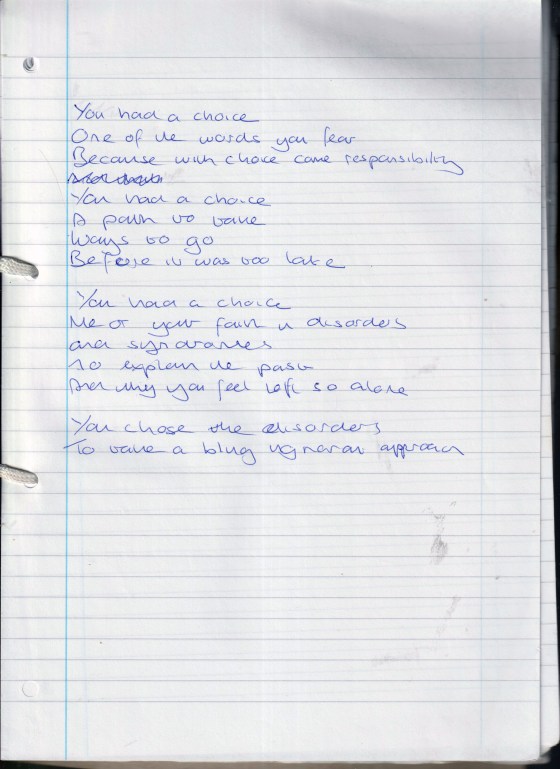 You had a choice
One of the words you fear
Because with choice came responsibility
You had a choice
A path to take
Ways to go
Before it was too late
You had a choice
Me or your faith in disorders
and syndromes
To explain the past
And why you feel left so alone
You chose the disorders
To take a approach